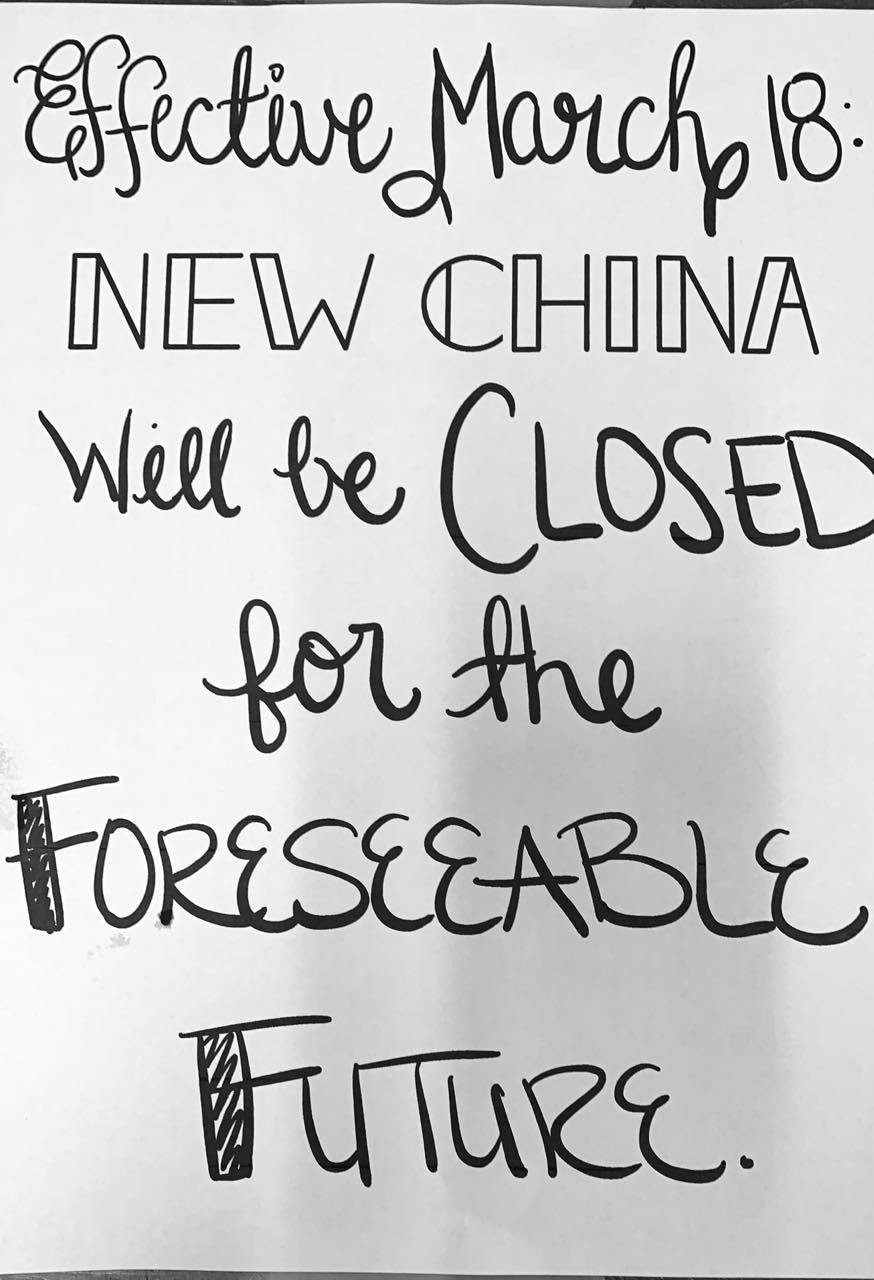 Effective March 18:
NEW CHINA
Will be CLOSED
for the
FORESEEABLE
FUTURE.